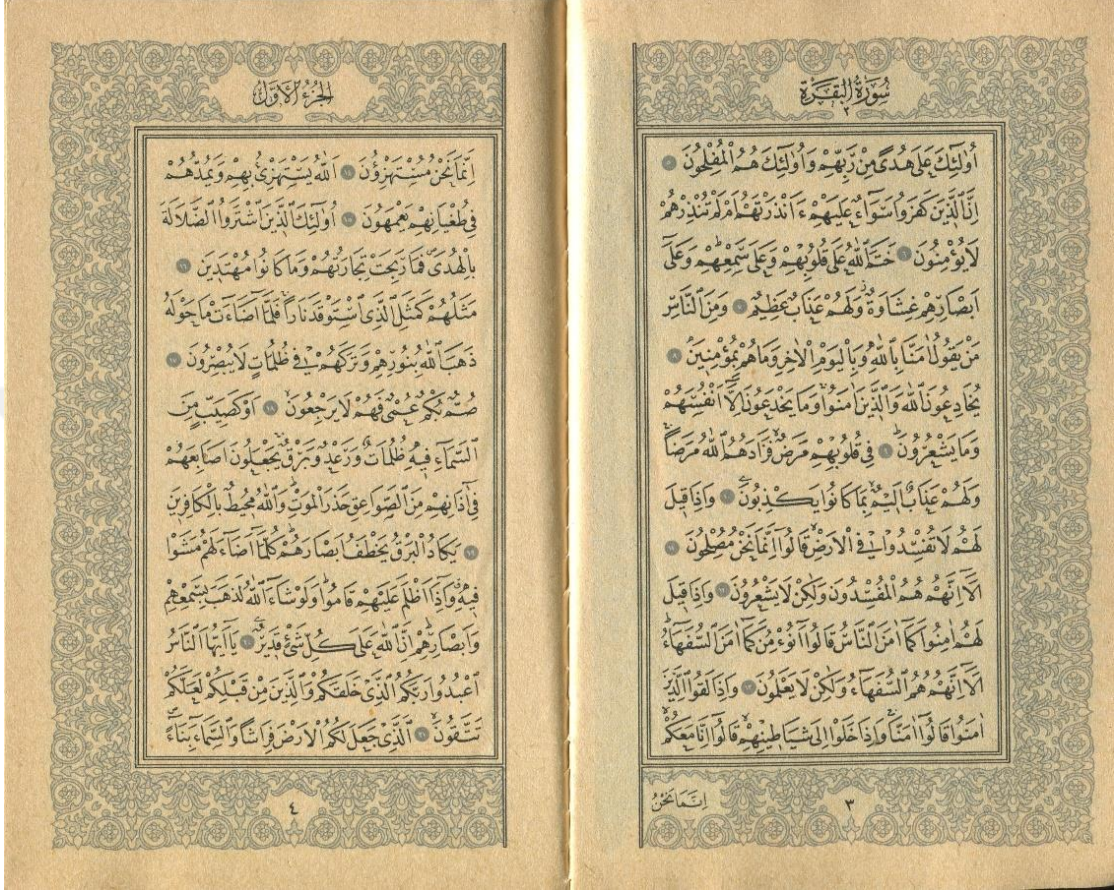 سُورَةُ الْبَقَرَةِ
٢
اُو۬لٰٓئِكَ عَلٰى هُدًى مِنْ رَبِّهِمْ وَاُو۬لٰٓئِكَ هُمُ الْمُفْلِحُونَ ٥
اِنَّ الَّذِينَ كَفَرُوا سَوَٓاءٌ عَلَيْهِمْ ءَاَنْذَرْتَهُمْ اَمْ لَمْ تُنْذِرْهُمْ
لَا يُؤْمِنُونَ ٦ خَتَمَ اللّٰهُ عَلٰى قُلُوبِهِمْ وَعَلٰى سَمْعِهِمْۜ وَعَلٰٓى
اَبْصَارِهِمْ غِشَاوَةٌۘ وَلَهُمْ عَذَابٌ عَظِيمٌ ٧ وَمِنَ النَّاسِ
مَنْ يَقُولُ اٰمَنَّا بِاللّٰهِ وَبِالْيَوْمِ الْاٰخِرِ وَمَا هُمْ بِمُؤْمِنِينَۢ ٨
يُخَادِعُونَ اللّٰهَ وَالَّذِينَ اٰمَنُواۚ وَمَا يَخْدَعُونَ اِلَّٓا اَنْفُسَهُمْ
وَمَا يَشْعُرُونَۜ ٩ فِي قُلُوبِهِمْ مَرَضٌۙ فَزَادَهُمُ اللّٰهُ مَرَضًاۚ
وَلَهُمْ عَذَابٌ اَلِيمٌۙ بِمَا كَانُوا يَكْذِبُونَ ١٠ وَاِذَا قِيلَ
لَهُمْ لَا تُفْسِدُوا فِي الْاَرْضِۙ قَالُٓوا اِنَّمَا نَحْنُ مُصْلِحُونَ ١١
اَلَٓا اِنَّهُمْ هُمُ الْمُفْسِدُونَ وَلٰكِنْ لَا يَشْعُرُونَ ١٢ وَاِذَا قِيلَ
لَهُمْ اٰمِنُوا كَمَٓا اٰمَنَ النَّاسُ قَالُٓوا اَنُؤْمِنُ كَمَٓا اٰمَنَ السُّفَهَٓاءُۜ
اَلَٓا اِنَّهُمْ هُمُ السُّفَهَٓاءُ وَلٰكِنْ لَا يَعْلَمُونَ ١٣ وَاِذَا لَقُوا الَّذِينَ
اٰمَنُوا قَالُٓوا اٰمَنَّاۚ وَاِذَا خَلَوْا اِلٰى شَيَاطِينِهِمْۙ قَالُٓوا اِنَّا مَعَكُمْۙ
٣
اِنَّمَا نَحْنُ
اَلْجُزْءُ الْاَوَّلُ
اِنَّمَا نَحْنُ مُسْتَهْزِؤُ۫نَ ١٤ اَللّٰهُ يَسْتَهْزِئُ بِهِمْ وَيَمُدُّهُمْ
فِي طُغْيَانِهِمْ يَعْمَهُونَ ١٥ اُو۬لٰٓئِكَ الَّذِينَ اشْتَرَوُا الضَّلَالَةَ
بِالْهُدٰىۖ فَمَا رَبِحَتْ تِجَارَتُهُمْ وَمَا كَانُوا مُهْتَدِينَ ١٦
مَثَلُهُمْ كَمَثَلِ الَّذِي اسْتَوْقَدَ نَارًاۚ فَلَمَّٓا اَضَٓاءَتْ مَا حَوْلَهُ
ذَهَبَ اللّٰهُ بِنُورِهِمْ وَتَرَكَهُمْ فِي ظُلُمَاتٍ لَا يُبْصِرُونَ ١٧
صُمٌّ بُكْمٌ عُمْيٌ فَهُمْ لَا يَرْجِعُونَۙ ١٨ اَوْ كَصَيِّبٍ مِنَ
السَّمَٓاءِ فِيهِ ظُلُمَاتٌ وَرَعْدٌ وَبَرْقٌۚ يَجْعَلُونَ اَصَابِعَهُمْ
فِٓي اٰذَانِهِمْ مِنَ الصَّوَاعِقِ حَذَرَ الْمَوْتِۜ وَاللّٰهُ مُحِيطٌ بِالْكَافِرِينَ
١٩ يَكَادُ الْبَرْقُ يَخْطَفُ اَبْصَارَهُمْۜ كُلَّمَٓا اَضَٓاءَ لَهُمْ مَشَوْا
فِيهِۙ وَاِذَٓا اَظْلَمَ عَلَيْهِمْ قَامُواۜ وَلَوْ شَٓاءَ اللّٰهُ لَذَهَبَ بِسَمْعِهِمْ
وَاَبْصَارِهِمْۜ اِنَّ اللّٰهَ عَلٰى كُلِّ شَيْءٍ قَدِيرٌ۟ ٢٠ يَٓا اَيُّهَا النَّاسُ
اعْبُدُوا رَبَّكُمُ الَّذِي خَلَقَكُمْ وَالَّذِينَ مِنْ قَبْلِكُمْ لَعَلَّكُمْ
تَتَّقُونَۙ ٢١ اَلَّذِي جَعَلَ لَكُمُ الْاَرْضَ فِرَاشًا وَالسَّمَٓاءَ بِنَٓاءًۖ
٤